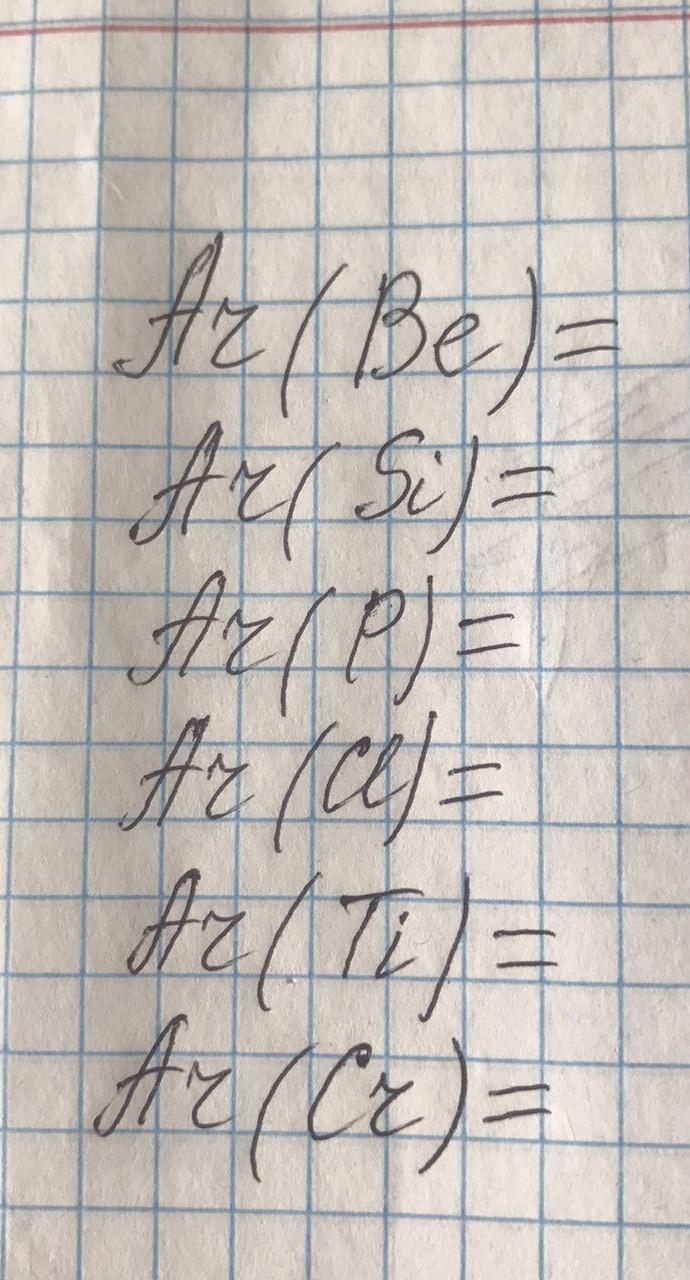 Ar(Be)=
Ar(Si)=
Ar(P)=
Ar(Cl)=
Ar(Ti)=
Ar(Cr)=